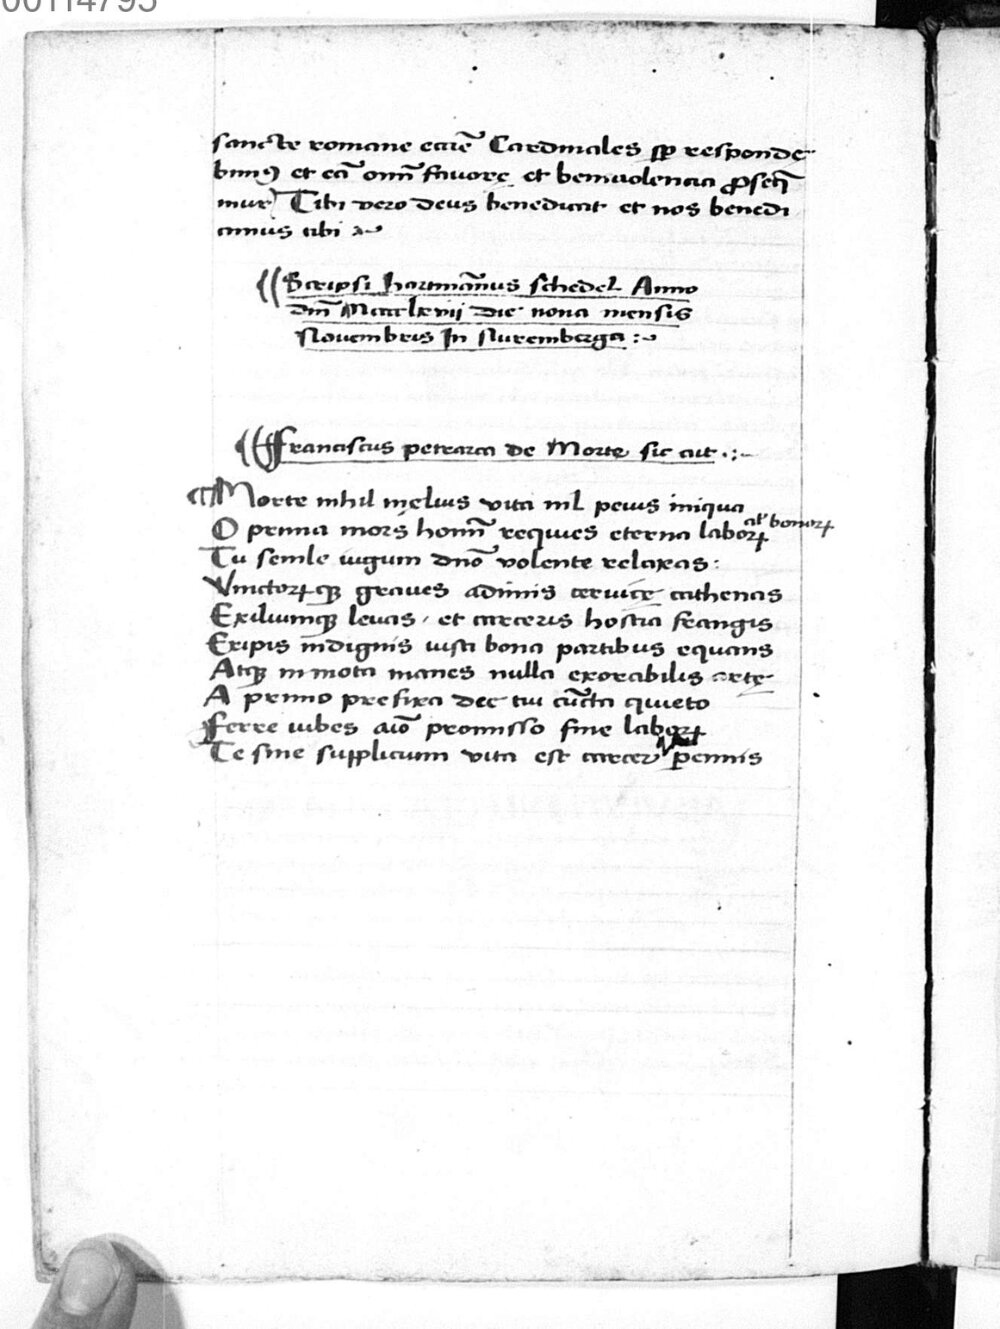 00114795
sancte romane ecciē Cardinales sp respondē
bimꝰ et eā omī fauore et beniuolencia ꝓseq̄
mur Tibi vero deus benedicat et nos benedi
cimus tibi
Scripsi hartmānus schedel Anno
dnī Mcccclxvij die nona mensis
Nouembris In Nuremberga :~
Franciscus petrarca de Morte sic ait .:~
Morte nihil melius vita nil peius iniqua
al' bonoꝝ
O prima mors homī requies eterna laboꝝ
Tu senile iugum dnō volente relaxas :
Vinctoꝝqꝫ graues adimis ceruice cathenas
Exiliumqꝫ leuas, et carceris hostia frangis
Eripis indignis iusti bona partibus equans
Atqꝫ inmota manes nulla exorabilis arte
A primo prefixa die tu cūcta quieto
Ferre iubes aīo promisso fine laboꝝ
Te sine supplicium vita est carcer ꝑennis